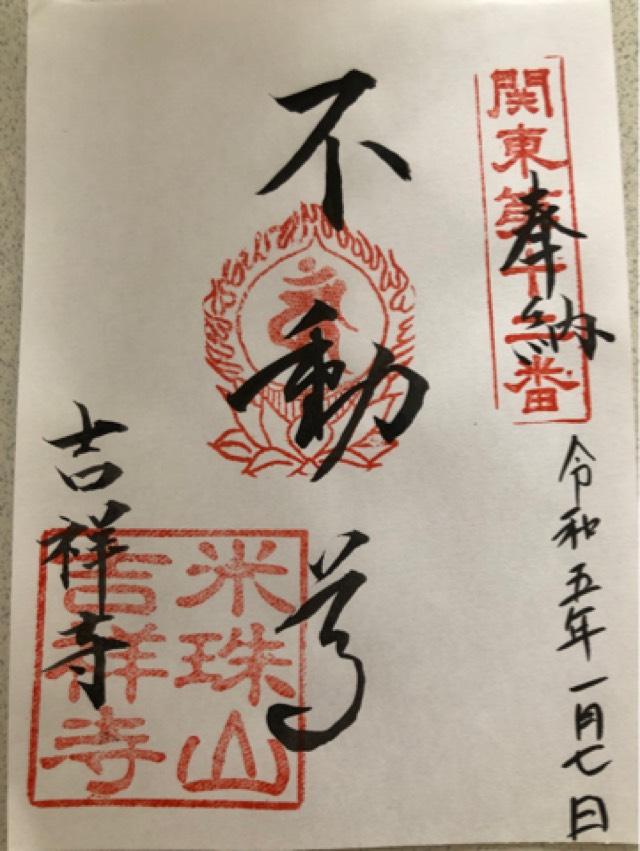 関東第十二番
奉納
令和五年一月七日
不動尊
吉祥寺
米珠山
吉祥寺